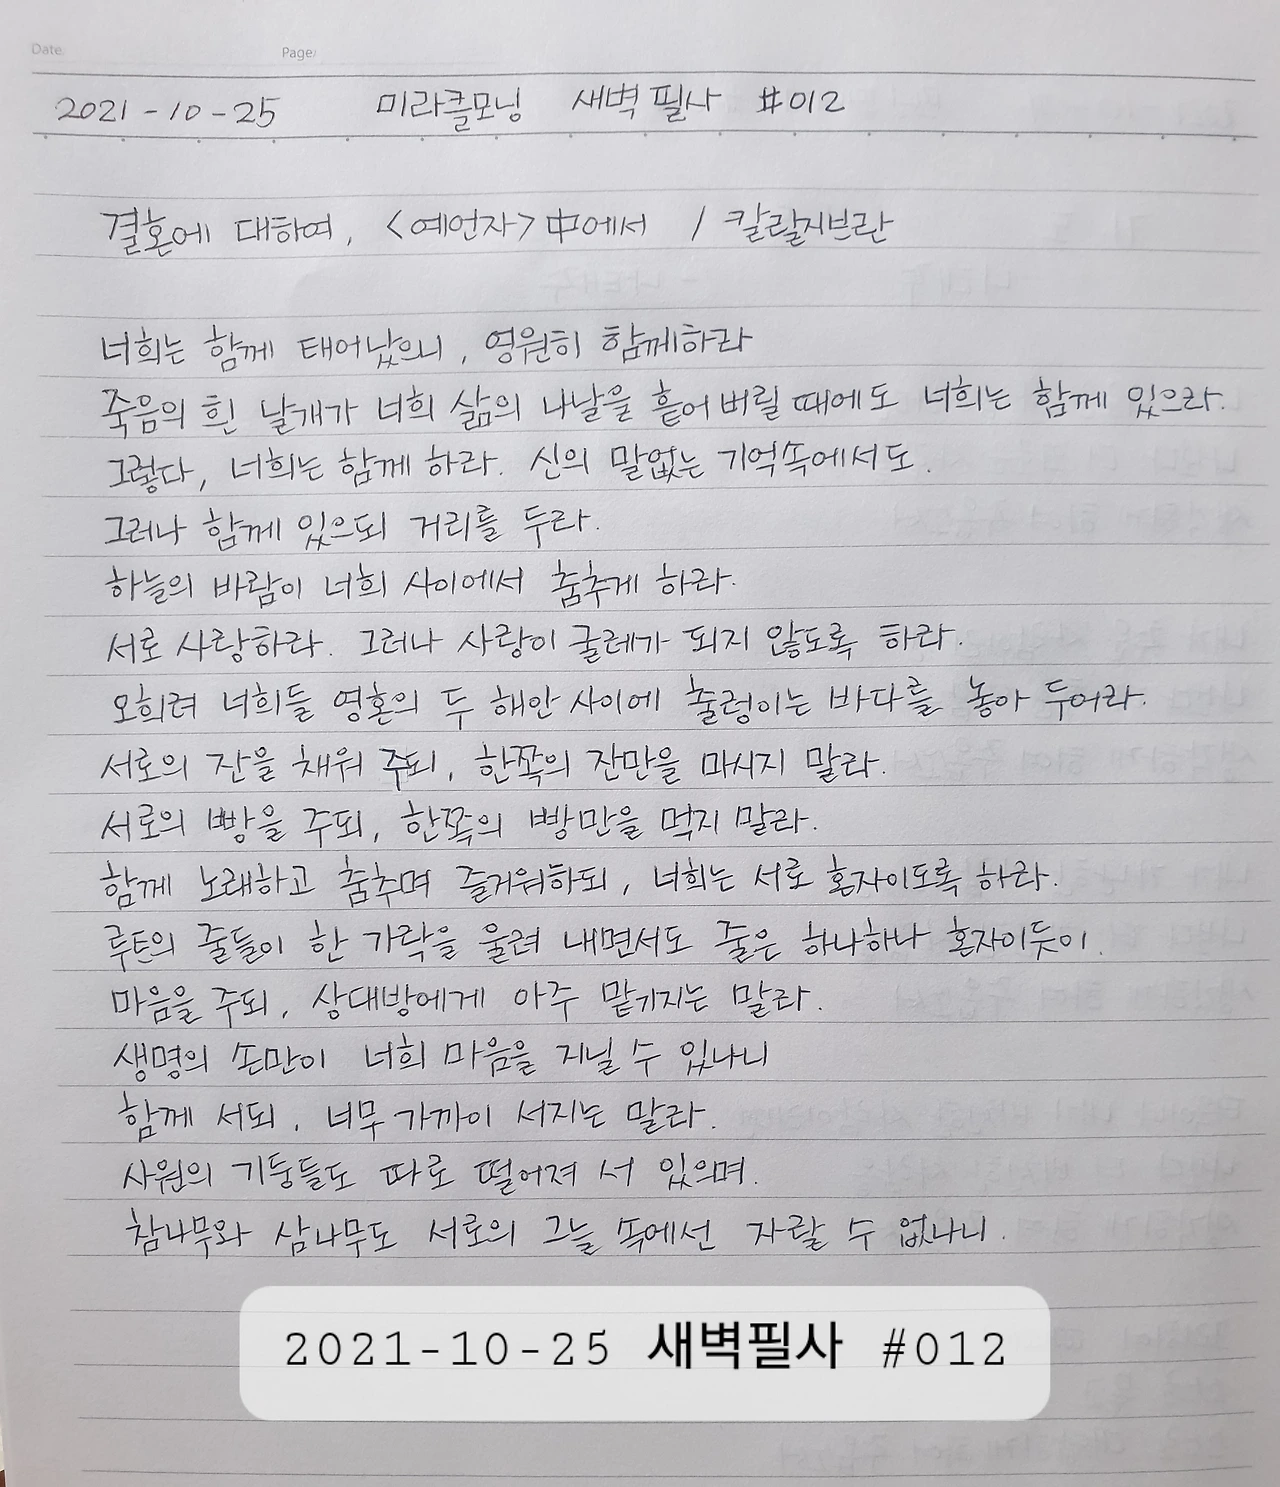 Date.
Page/
2021-10-25 미라클모닝 새벽 필사 #012
결혼에 대하여, <예언자>中에서 / 칼릴지브란
너희는 함께 태어났으니, 영원히 함께하라
죽음의 흰 날개가 너희 삶의 나날을 흩어 버릴 때에도 너희는 함께 있으라.
그렇다, 너희는 함께 하라. 신의 말없는 기억속에서도.
그러나 함께 있으되 거리를 두라.
하늘의 바람이 너희 사이에서 춤추게 하라.
서로 사랑하라. 그러나 사랑이 굴레가 되지 않도록 하라.
오히려 너희들 영혼의 두 해안 사이에 출렁이는 바다를 놓아 두어라.
서로의 잔을 채워 주되, 한쪽의 잔만을 마시지 말라.
서로의 빵을 주되, 한쪽의 빵만을 먹지 말라.
함께 노래하고 춤추며 즐거워하되, 너희는 서로 혼자이도록 하라.
루트의 줄들이 한 가락을 울려 내면서도 줄은 하나하나 혼자이듯이.
마음을 주되, 상대방에게 아주 맡기지는 말라.
생명의 손만이 너희 마음을 지닐 수 있나니
함께 서되, 너무 가까이 서지는 말라.
사원의 기둥들도 따로 떨어져 서 있으며.
참나무와 삼나무도 서로의 그늘 속에선 자랄 수 없나니.
2021-10-25 새벽필사 #012